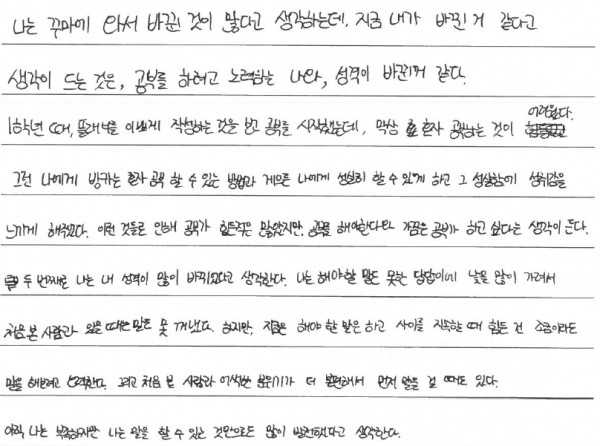 나는 꾸마에 와서 바뀐 것이 많다고 생각하는데, 지금 내가 바뀐 거 같다고
생각이 드는 것은, 공부를 하려고 노력하는 나와, 성격이 바뀐거 같다.
1학년 때, 또래 너를 이쁘게 작성하는 것을 보고 공부를 시작했는데, 막상 혼자 공부하는 것이 어려웠다.
그런 나에게 방카는 혼자 공부 할 수 있는 방법과 게으른 나에게 성실히 할 수 있게 하고 그 성실함에 성취감을
느끼게 해주었다. 이런 것들로 인해 공부가 힘들적은 많았지만, 공부를 해야한다와 가끔은 공부가 하고 싶다는 생각이 든다.
두 번째로 나는 내 성격이 많이 바뀌었다고 생각한다. 나는 해야할 말도 못한 답답이에 낯을 많이 가려서
처음 본 사람과 있을 때는 말도 못 꺼냈다. 하지만, 지금은 해야 할 말은 하고 사이를 지속할 때 힘든 건 조금이라도
말을 해보려고 노력한다. 그리고 처음 본 사람과 어색한 분위기가 더 불편해서 먼저 말을 걸 때도 있다.
아직 나는 부족하지만 나는 말을 할 수 있는 것만으로도 많이 발전했다고 생각한다.